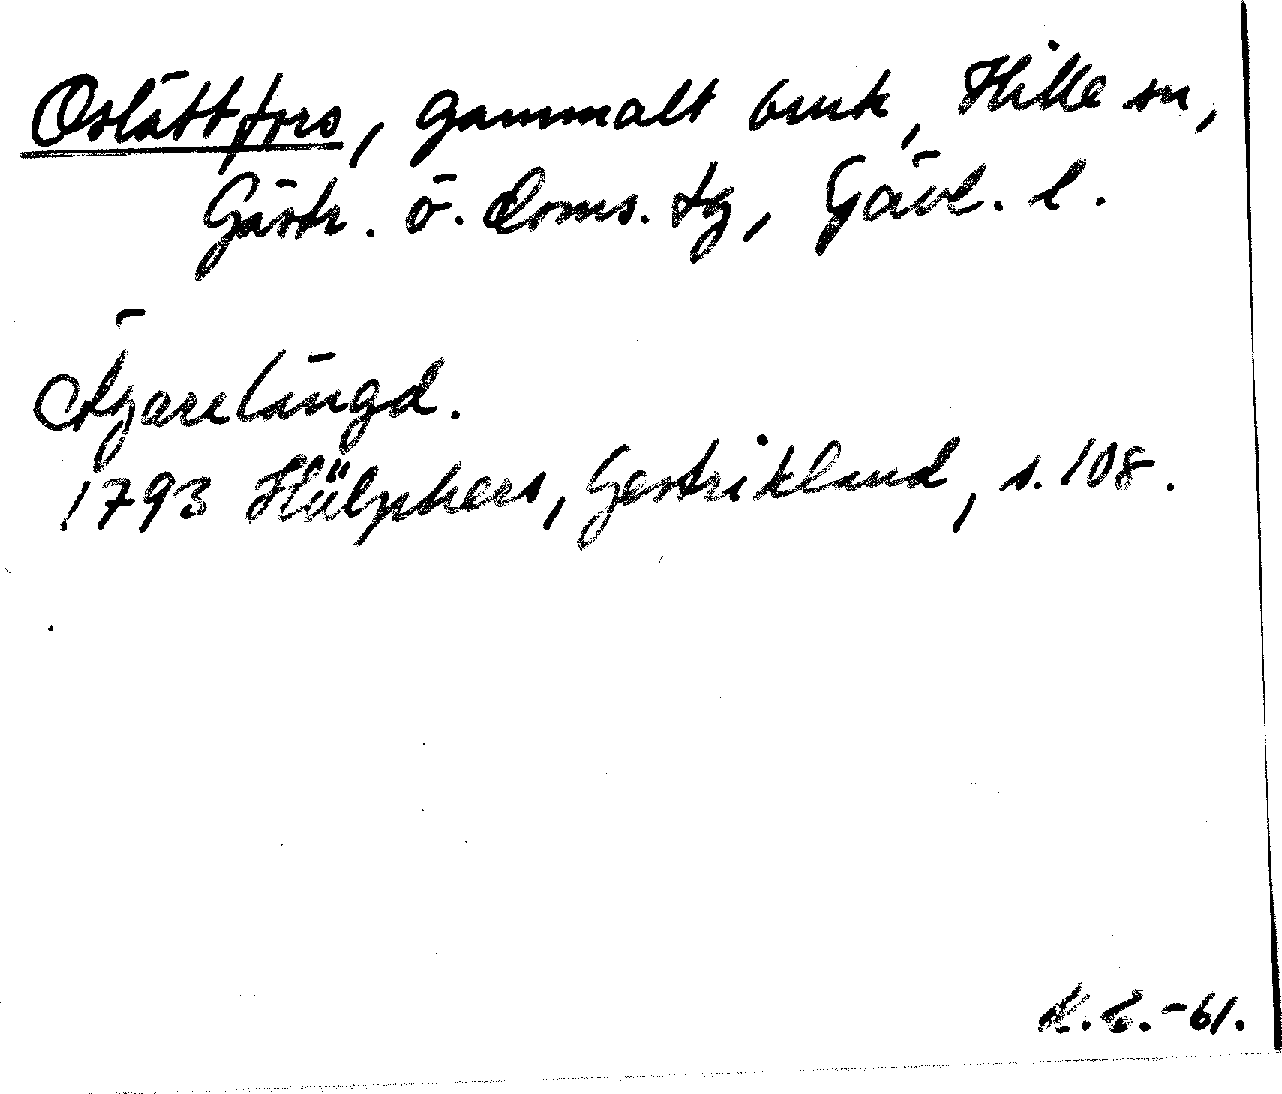 Oslättfors, gammalt bruk, Hille sn,
Gästr. ö. Doms. tg, Gävl. l.
Ägarelängd.
1793 Hülphers, Gestrikland, s. 108.
K.E.-61.